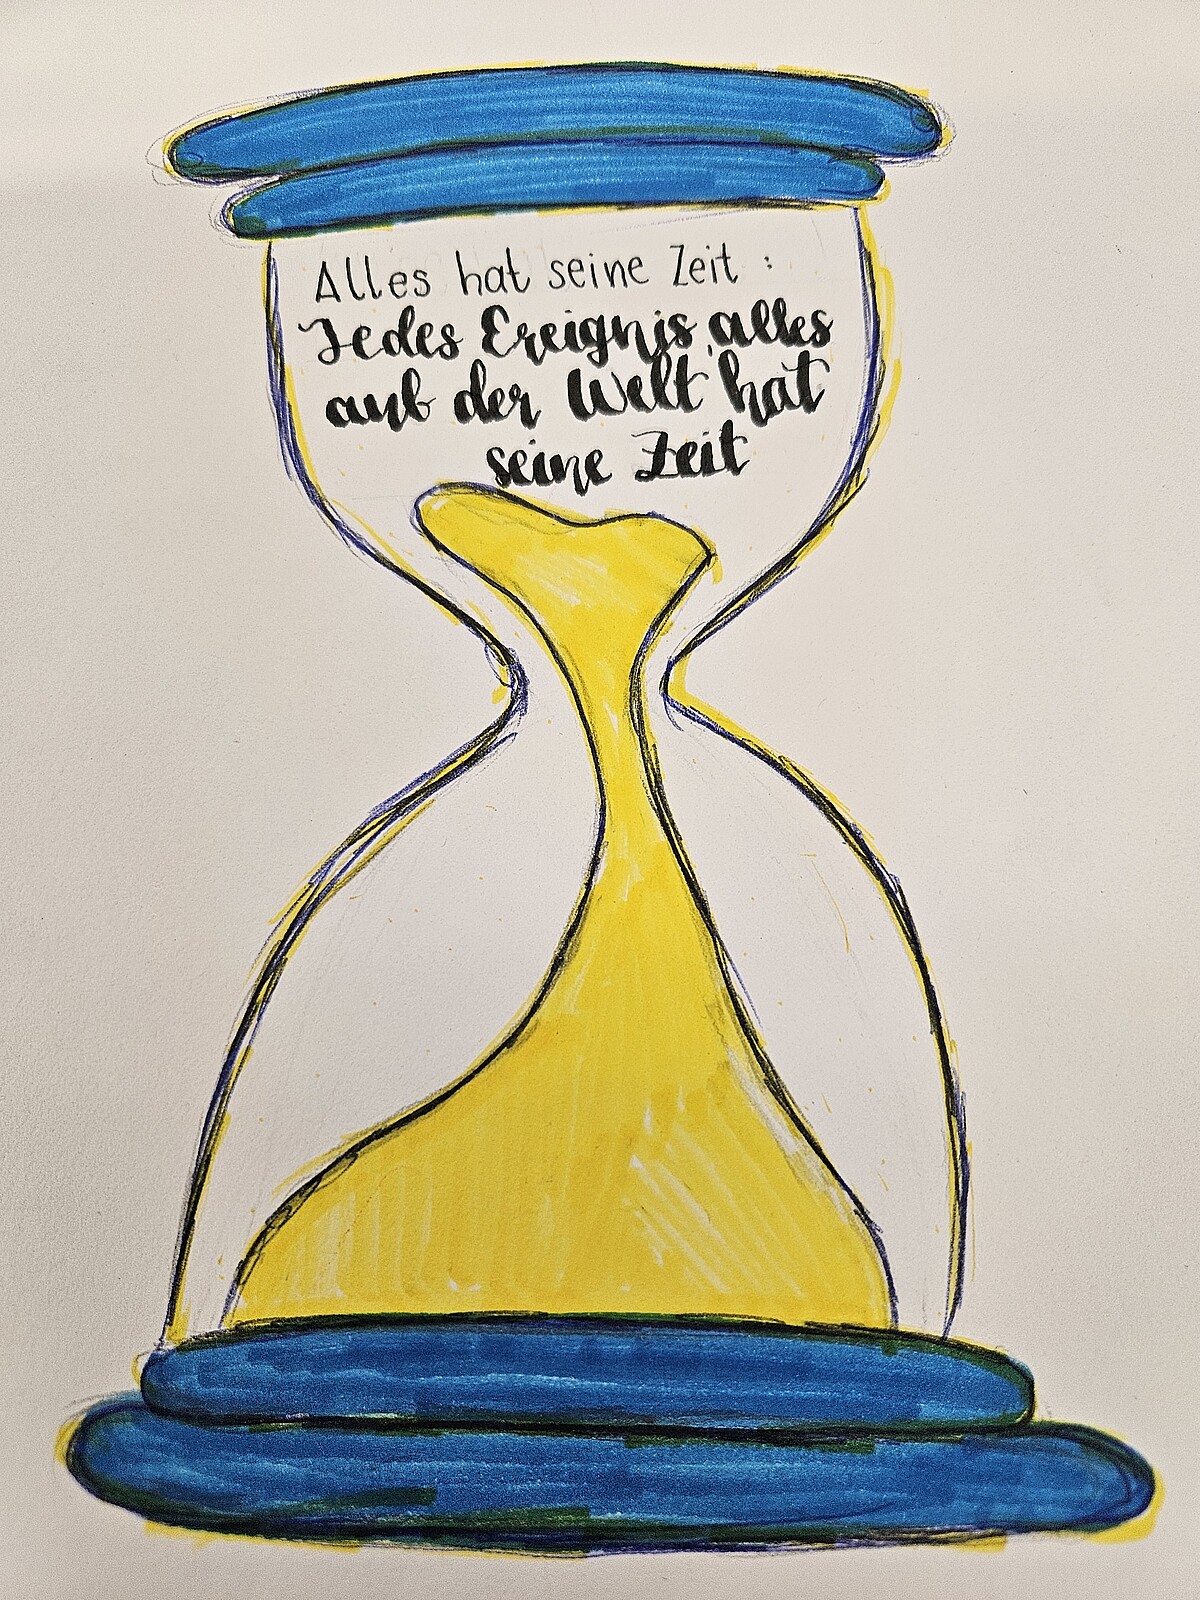 Alles hat seine Zeit :
Jedes Ereignis, alles
auf der Welt hat
seine Zeit